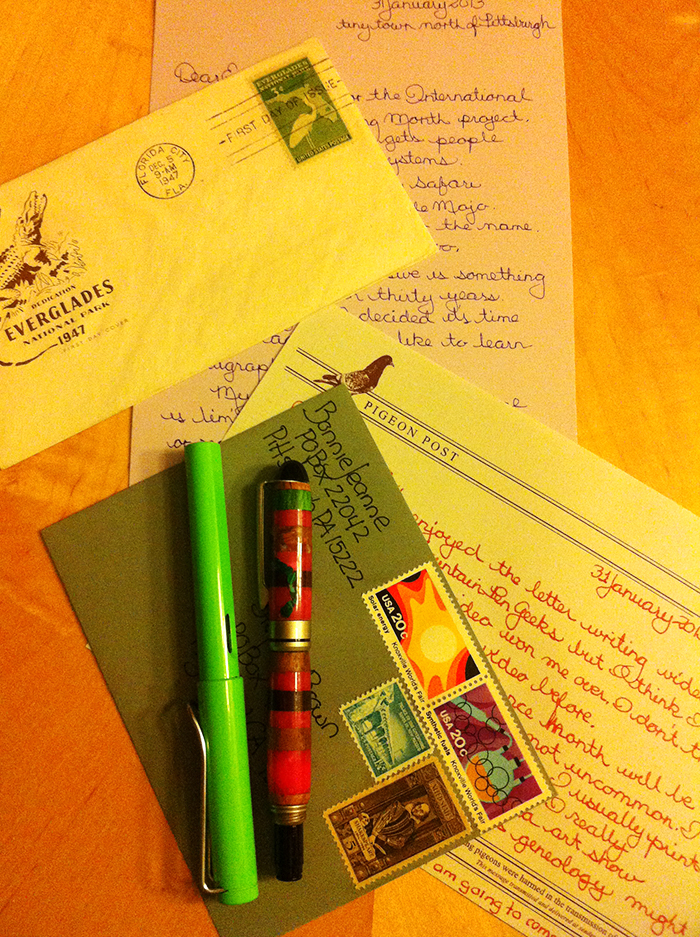 31 January 2013
tiny town north of Pittsburgh
Dear
or the International
ng Month project.
gets people
ystems.
safari
le Mojo.
the name.
ive is something
thirty years.
decided its time
like to learn
My
is
EVERGLADES
NATIONAL PARK
3¢
UNITED STATES POSTAGE
FIRST DAY OF ISSUE
FLORIDA CITY
DEC 5
9-AM
1947
FLA.
DEDICATION
EVERGLADES
NATIONAL PARK
1947
FIRST DAY COVER
PIGEON POST
31 January 201
enjoyed the letter writing vide
untain Pen Geeks but I think
video won me over. I don't
video before.
nce Month will be
not uncommon. I
I usually print
I really
a art show
s geneology might
ng pigeons were harmed in the transmission
This message transmitted and delivered at
am going to com
Bonnie Jeanne
PO Box 22042
Pitts PA 15222
Brown
PO Box
USA 20c
Solar energy
Knoxville World's Fair
USA 20c
Synthetic fuels
Knoxville World's Fair
5¢